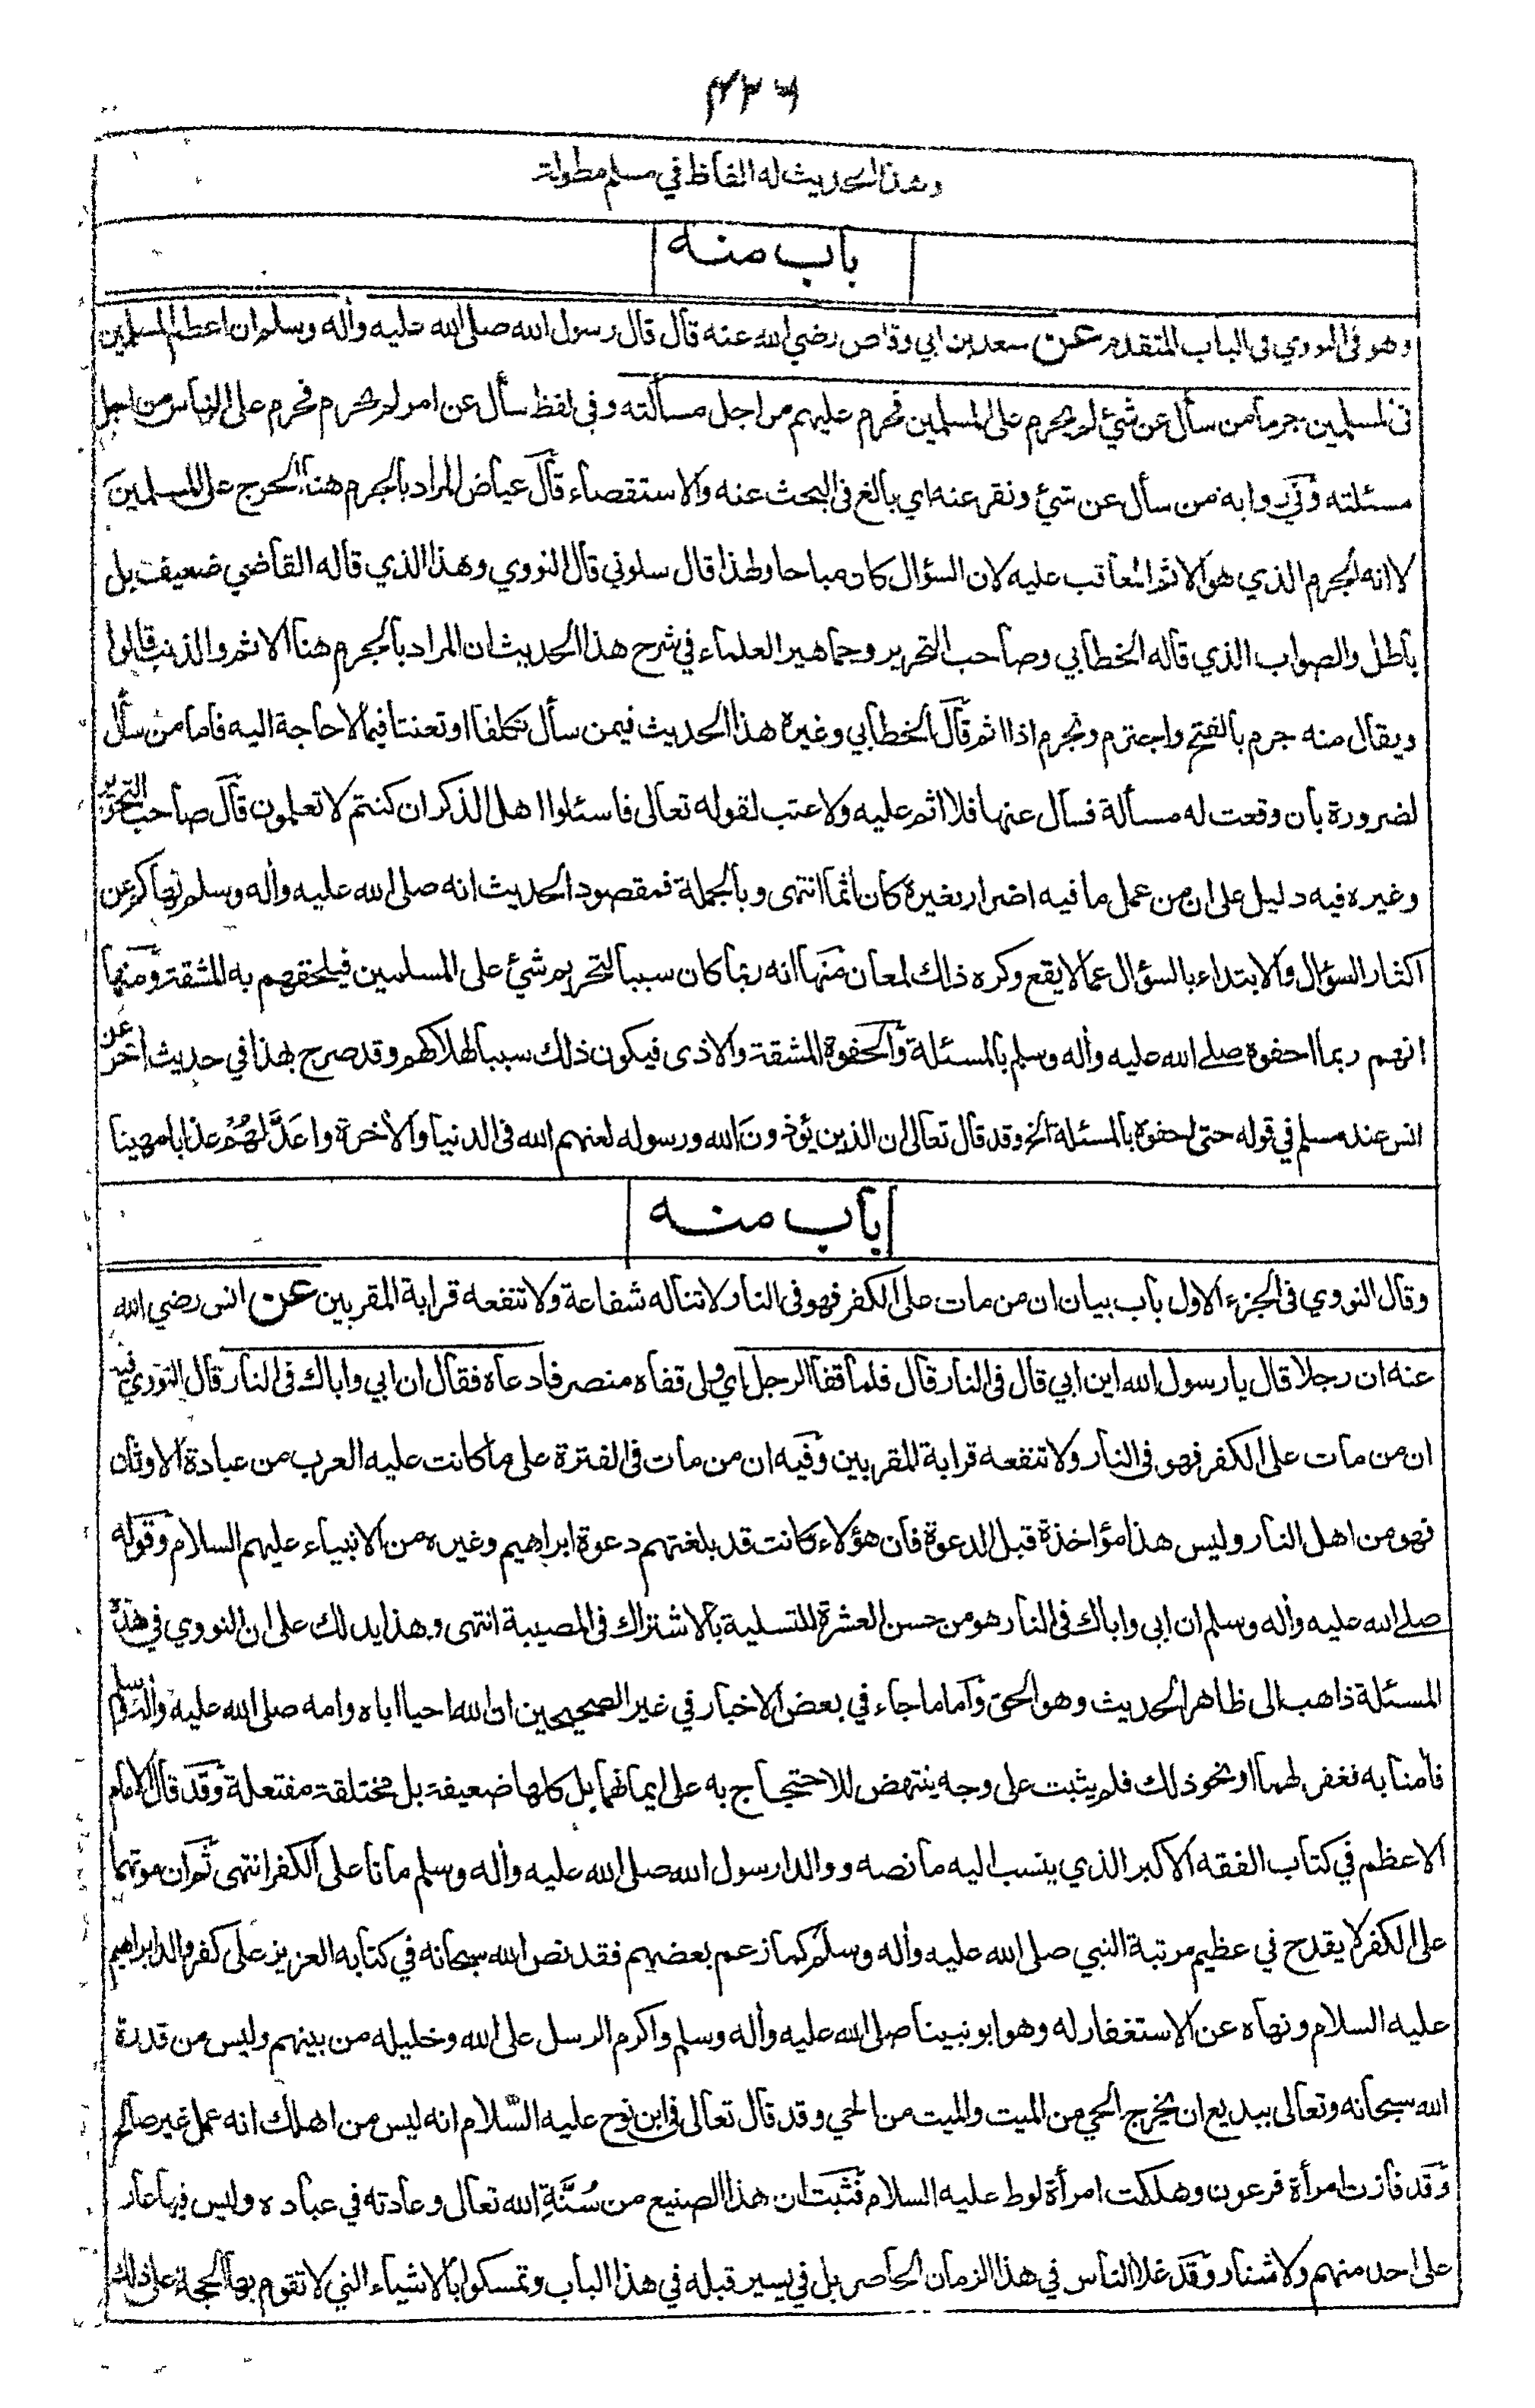 ٤٣٦
وهذا الحديث له الفاظ في مسلم مطولة
باب منه
وهو في النووي في الباب المتقدم عن سعد بن ابي وقاص رضي الله عنه قال قال رسول الله صلى الله عليه وأله وسلم ان اعظم المسلمين
في المسلمين جرما من سأل عن شيئ لم يحرم على المسلمين فحرم عليهم من اجل مسألته وفي لفظ سأل عن امر لم يحرم فحرم على الناس من اجل
مسئلته وفي رواية من سأل عن شيئ ونقر عنه اي بالغ في البحث عنه والاستقصاء قال عياض المراد بالجرم هنا الحرج على المسلمين
لا انه الجرم الذي هو الاثم المعاقب عليه لان السؤال كان مباحا ولهذا قال سلوني قال النووي وهذا الذي قاله القاضي ضعيف بل
باطل والصواب الذي قاله الخطابي وصاحب التحرير وجماهير العلماء في شرح هذا الحديث ان المراد بالجرم هنا الاثم والذنب قالوا
ويقال منه جرم بالفتح واجترم وتجرم اذا اثم قال الخطابي وغيره هذا الحديث فيمن سأل تكلفا او تعنتا فيما لا حاجة اليه فاما من سأل
لضرورة بأن وقعت له مسألة فسأل عنها فلا اثم عليه ولا عتب لقوله تعالى فاسئلوا اهل الذكر ان كنتم لا تعلمون قال صاحب التحرير
وغيره فيه دليل على ان من عمل ما فيه اضرار بغيره كان أثما انتهى وبالجملة فمقصود الحديث انه صلى الله عليه وأله وسلم نهاكم عن
اكثار السؤال والابتداء بالسؤال عما لا يقع وكره ذلك لمعان منها انه ربما كان سببا لتحريم شيئ على المسلمين فيلحقهم به المشقة ومنها
انهم ربما احفوه صلى الله عليه وأله وسلم بالمسئلة والحفوة المشقة والاذى فيكون ذلك سببا لهلاكهم وقد صرح بهذا في حديث أخر عن
انس عند مسلم في قوله حتى احفوه بالمسئلة الخ وقد قال تعالى ان الذين يؤذون الله ورسوله لعنهم الله في الدنيا والأخرة واعَدَّ لهُمْ عذابا مهينا
باب منه
وقال النووي في الجزء الاول باب بيان ان من مات على الكفر فهو في النار لا تناله شفاعة ولا تنفعه قرابة المقربين عن انس رضي الله
عنه ان رجلا قال يا رسول الله اين ابي قال في النار قال فلما قفا الرجل اي ولى قفاه منصرفا دعاه فقال ان ابي واباك في النار قال النووي فيه
ان من مات على الكفر فهو في النار ولا تنفعه قرابة المقربين وفيه ان من مات في الفترة على ما كانت عليه العرب من عبادة الاوثان
فهو من اهل النار وليس هذا مؤاخذة قبل الدعوة فان هؤلاء كانت قد بلغتهم دعوة ابراهيم وغيره من الانبياء عليهم السلام وقوله
صلى الله عليه وأله وسلم ان ابي واباك في النار هو من حسن العشرة للتسلية بالاشتراك في المصيبة انتهى وهذا يدلك على ان النووي في هذه
المسئلة ذاهب الى ظاهر الحديث وهو الحق وأما ما جاء في بعض الاخبار في غير الصحيحين ان الله احيا اباه وامه صلى الله عليه وأله وسلم
فأمنا به فغفر لهما او نحو ذلك فلم يثبت على وجه ينتهض للاحتجاج به على ايمانهما بل كلها ضعيفة بل مختلقة مفتعلة وقد قال الامام
الاعظم في كتاب الفقه الاكبر الذي ينسب اليه ما نصه ووالدا رسول الله صلى الله عليه وأله وسلم ماتا على الكفر انتهى ثم ان موتهما
على الكفر لا يقدح في عظيم مرتبة النبي صلى الله عليه وأله وسلم كما زعم بعضهم فقد نص الله سبحانه في كتابه العزيز على كفر والد ابراهيم
عليه السلام ونهاه عن الاستغفار له وهو ابو نبينا صلى الله عليه وأله وسلم واكرم الرسل على الله وخليله من بينهم وليس من قدرة
الله سبحانه وتعالى ببديع ان يخرج الحي من الميت والميت من الحي وقد قال تعالى في ابن نوح عليه السّلام انه ليس من اهلك انه عمل غير صالح
وقد فازت امرأة فرعون وهلكت امرأة لوط عليه السلام فثبت ان هذا الصنيع من سُنَّةِ الله تعالى وعادته في عباده وليس فيها عار
على احد منهم ولا شنار وقد غلا الناس في هذا الزمان الحاضر بل في يسير قبله في هذا الباب وتمسكوا بالاشياء التي لا تقوم بها الحجة على ذلك